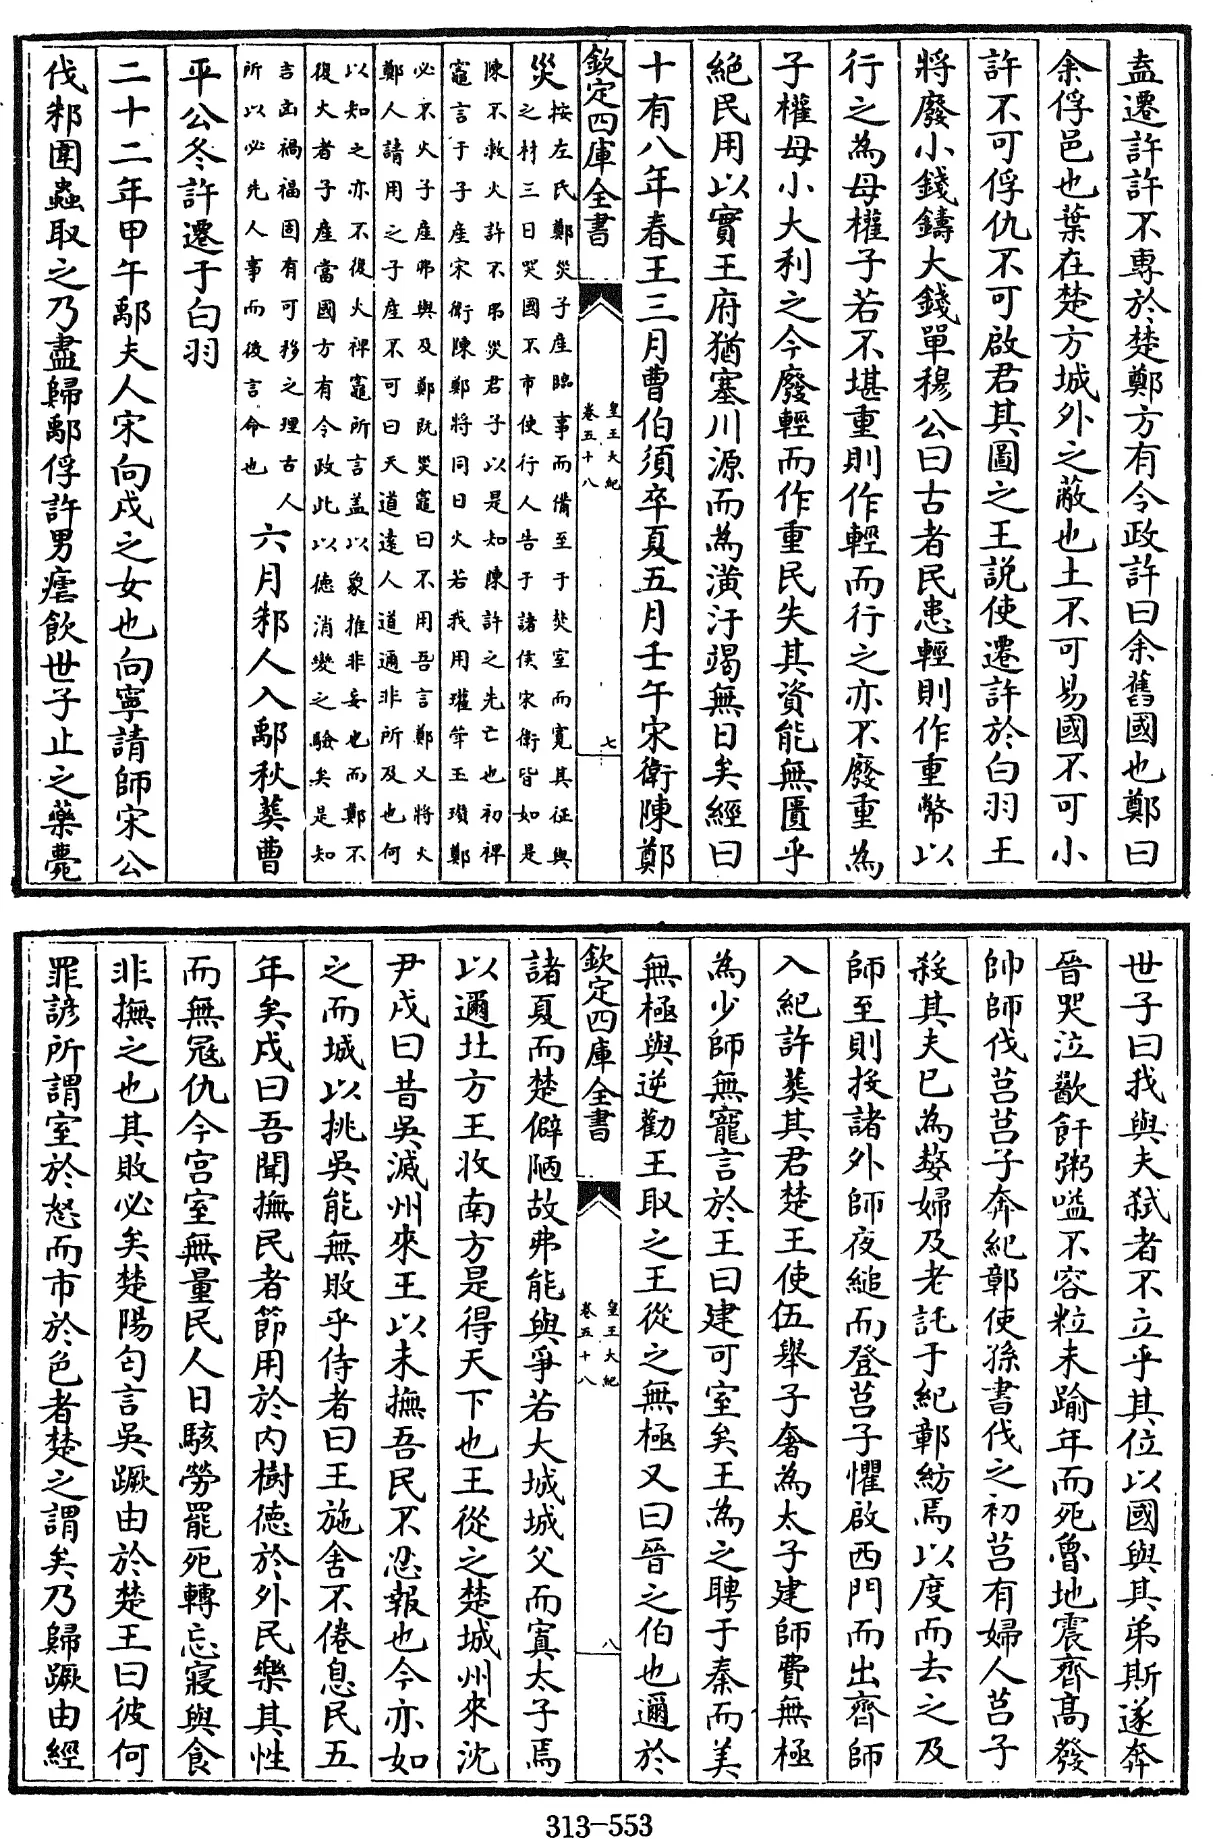 盍遷許許不專於楚鄭方有令政許曰余舊國也鄭曰
余俘邑也葉在楚方城外之蔽也土不可易國不可小
許不可俘仇不可啟君其圖之王説使遷許於白羽王
將廢小錢鑄大錢單穆公曰古者民患輕則作重幣以
行之為母權子若不堪重則作輕而行之亦不廢重為
子權母小大利之今廢輕而作重民失其資能無匱乎
絶民用以實王府猶塞川源而為潢汙竭無日矣經曰
十有八年春王三月曹伯須卒夏五月壬午宋衛陳鄭
欽定四庫全書
皇王大紀
卷五十八
七
災
按左氏鄭災子産臨事而備至于焚室而寛其征與
之材三日哭國不市使行人告于諸侯宋衛皆如是
陳不救火許不弔災君子以是知陳許之先亡也初裨
竈言于子産宋衛陳鄭將同日火若我用瓘斝玉瓚鄭
必不火子産弗與及鄭既災竈曰不用吾言鄭又將火
鄭人請用之子産不可曰天道逺人道邇非所及也何
以知之亦不復火裨竈所言盖以象推非妄也而鄭不
復火者子産當國方有令政此以徳消變之驗矣是知
吉凶禍福固有可移之理古人
所以必先人事而後言命也
六月邾人入鄅秋葬曹
平公冬許遷于白羽
二十二年甲午鄅夫人宋向戍之女也向寧請師宋公
伐邾圍蟲取之乃盡歸鄅俘許男瘧飲世子止之藥薨
世子曰我與夫弑者不立乎其位以國與其弟斯遂奔
晉哭泣歠飦粥嗌不容粒未踰年而死魯地震齊髙發
帥師伐莒莒子奔紀鄣使孫書伐之初莒有婦人莒子
殺其夫已為嫠婦及老託于紀鄣紡焉以度而去之及
師至則投諸外師夜縋而登莒子懼啟西門而出齊師
入紀許葬其君楚王使伍舉子奢為太子建師費無極
為少師無寵言於王曰建可室矣王為之聘于秦而美
無極與逆勸王取之王從之無極又曰晉之伯也邇於
欽定四庫全書
皇王大紀
卷五十八
八
諸夏而楚僻陋故弗能與爭若大城城父而寘太子焉
以邇北方王收南方是得天下也王從之楚城州來沈
尹戍曰昔吳滅州來王以未撫吾民不忍報也今亦如
之而城以挑吳能無敗乎侍者曰王施舍不倦息民五
年矣戍曰吾聞撫民者節用於内樹徳於外民樂其性
而無冦仇今宫室無量民人日駭勞罷死轉忘寢與食
非撫之也其敗必矣楚陽匄言吳蹶由於楚王曰彼何
罪諺所謂室於怒而市於色者楚之謂矣乃歸蹶由經
313-553